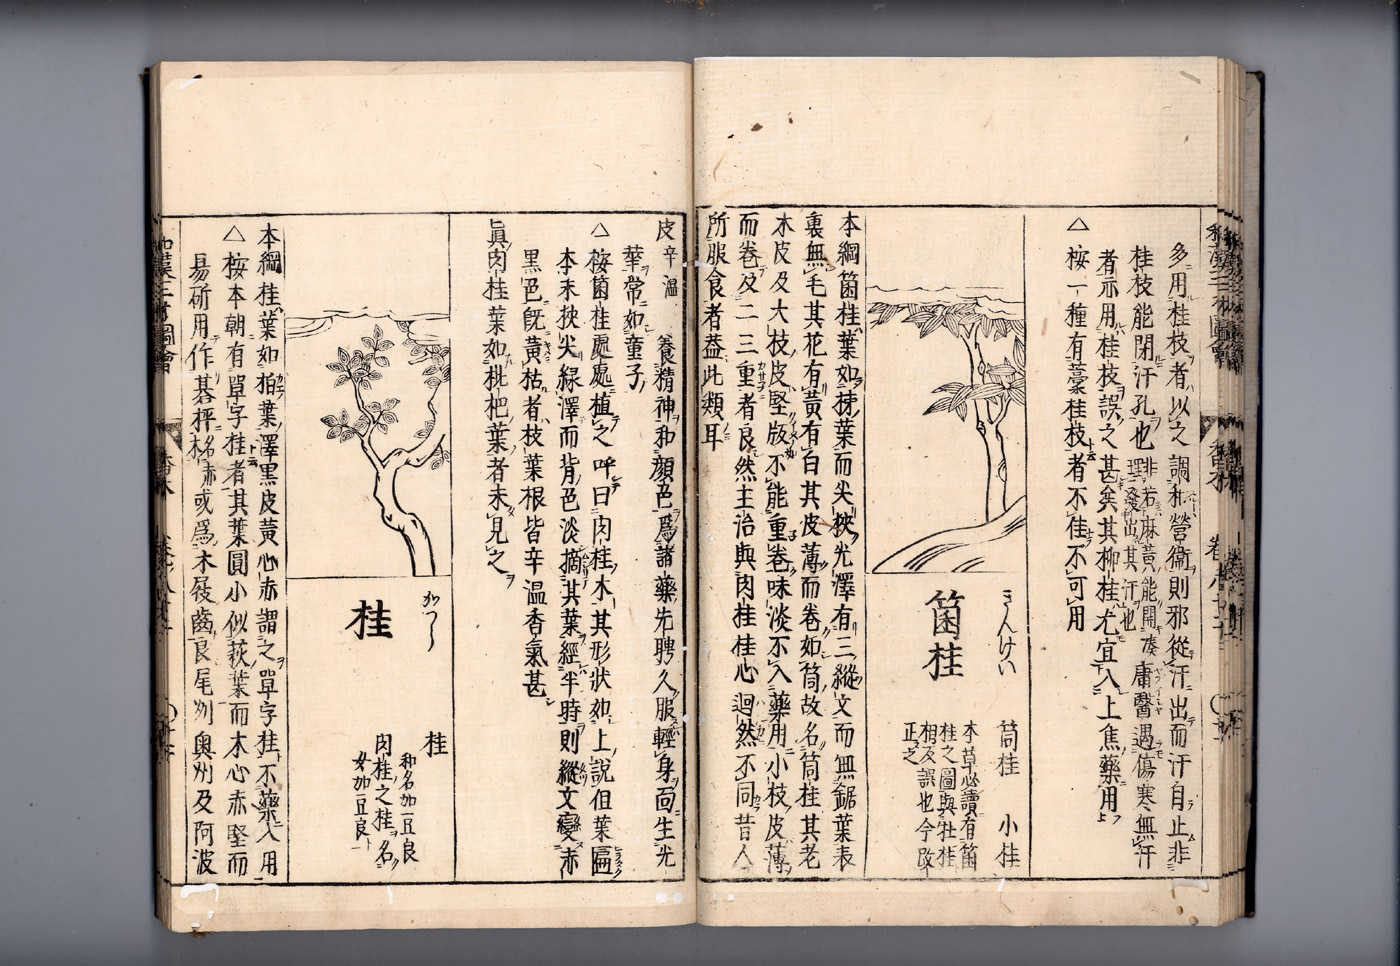 多用桂枝者以之調和營衞則邪從汗出而汗自止非
桂枝能閉汗孔也非若麻黃能開湊理發出其汗也庸醫遇傷寒無汗
者亦用桂枝誤之甚矣其柳桂尤宜入上焦藥用
△按一種有藁桂枝者不佳不可用
きんけい
箘桂
筒桂 小桂
本草必讀有箘
桂之圖與牡桂
相反誤也今改
正之
本綱箘桂葉如柹葉而尖狹光澤有三縱文而無鋸葉表
裏無毛其花有黃有白其皮薄而卷如筒故名筒桂其老
木皮及大枝皮堅版不能重卷味淡不入藥用小枝皮薄
而卷及二三重者良然主治與肉桂桂心迥然不同昔人
所服食者蓋此類耳
皮辛溫 養精神和顏色爲諸藥先聘久服輕身面生光
華常如童子
△按箘桂處處植之呼曰肉桂木其形狀如上說但葉匾
本末狹尖綠澤而背色淡摘其葉經半時則縱文變赤
黑色旣黃枯者枝葉根皆辛溫香氣甚
眞肉桂葉如枇杷葉者未見之
かつら
桂
桂
和名加豆良
肉桂之桂名
女加豆良
本綱桂葉如栢葉澤黑皮黃心赤謂之單字桂不藥入用
△按本朝有單字桂者其葉圓小似荻葉而木心赤堅而
易斫用作碁枰名赤木或爲木屐齒良尾州奥州及阿波
和漢三才圖會
香木 卷八十二